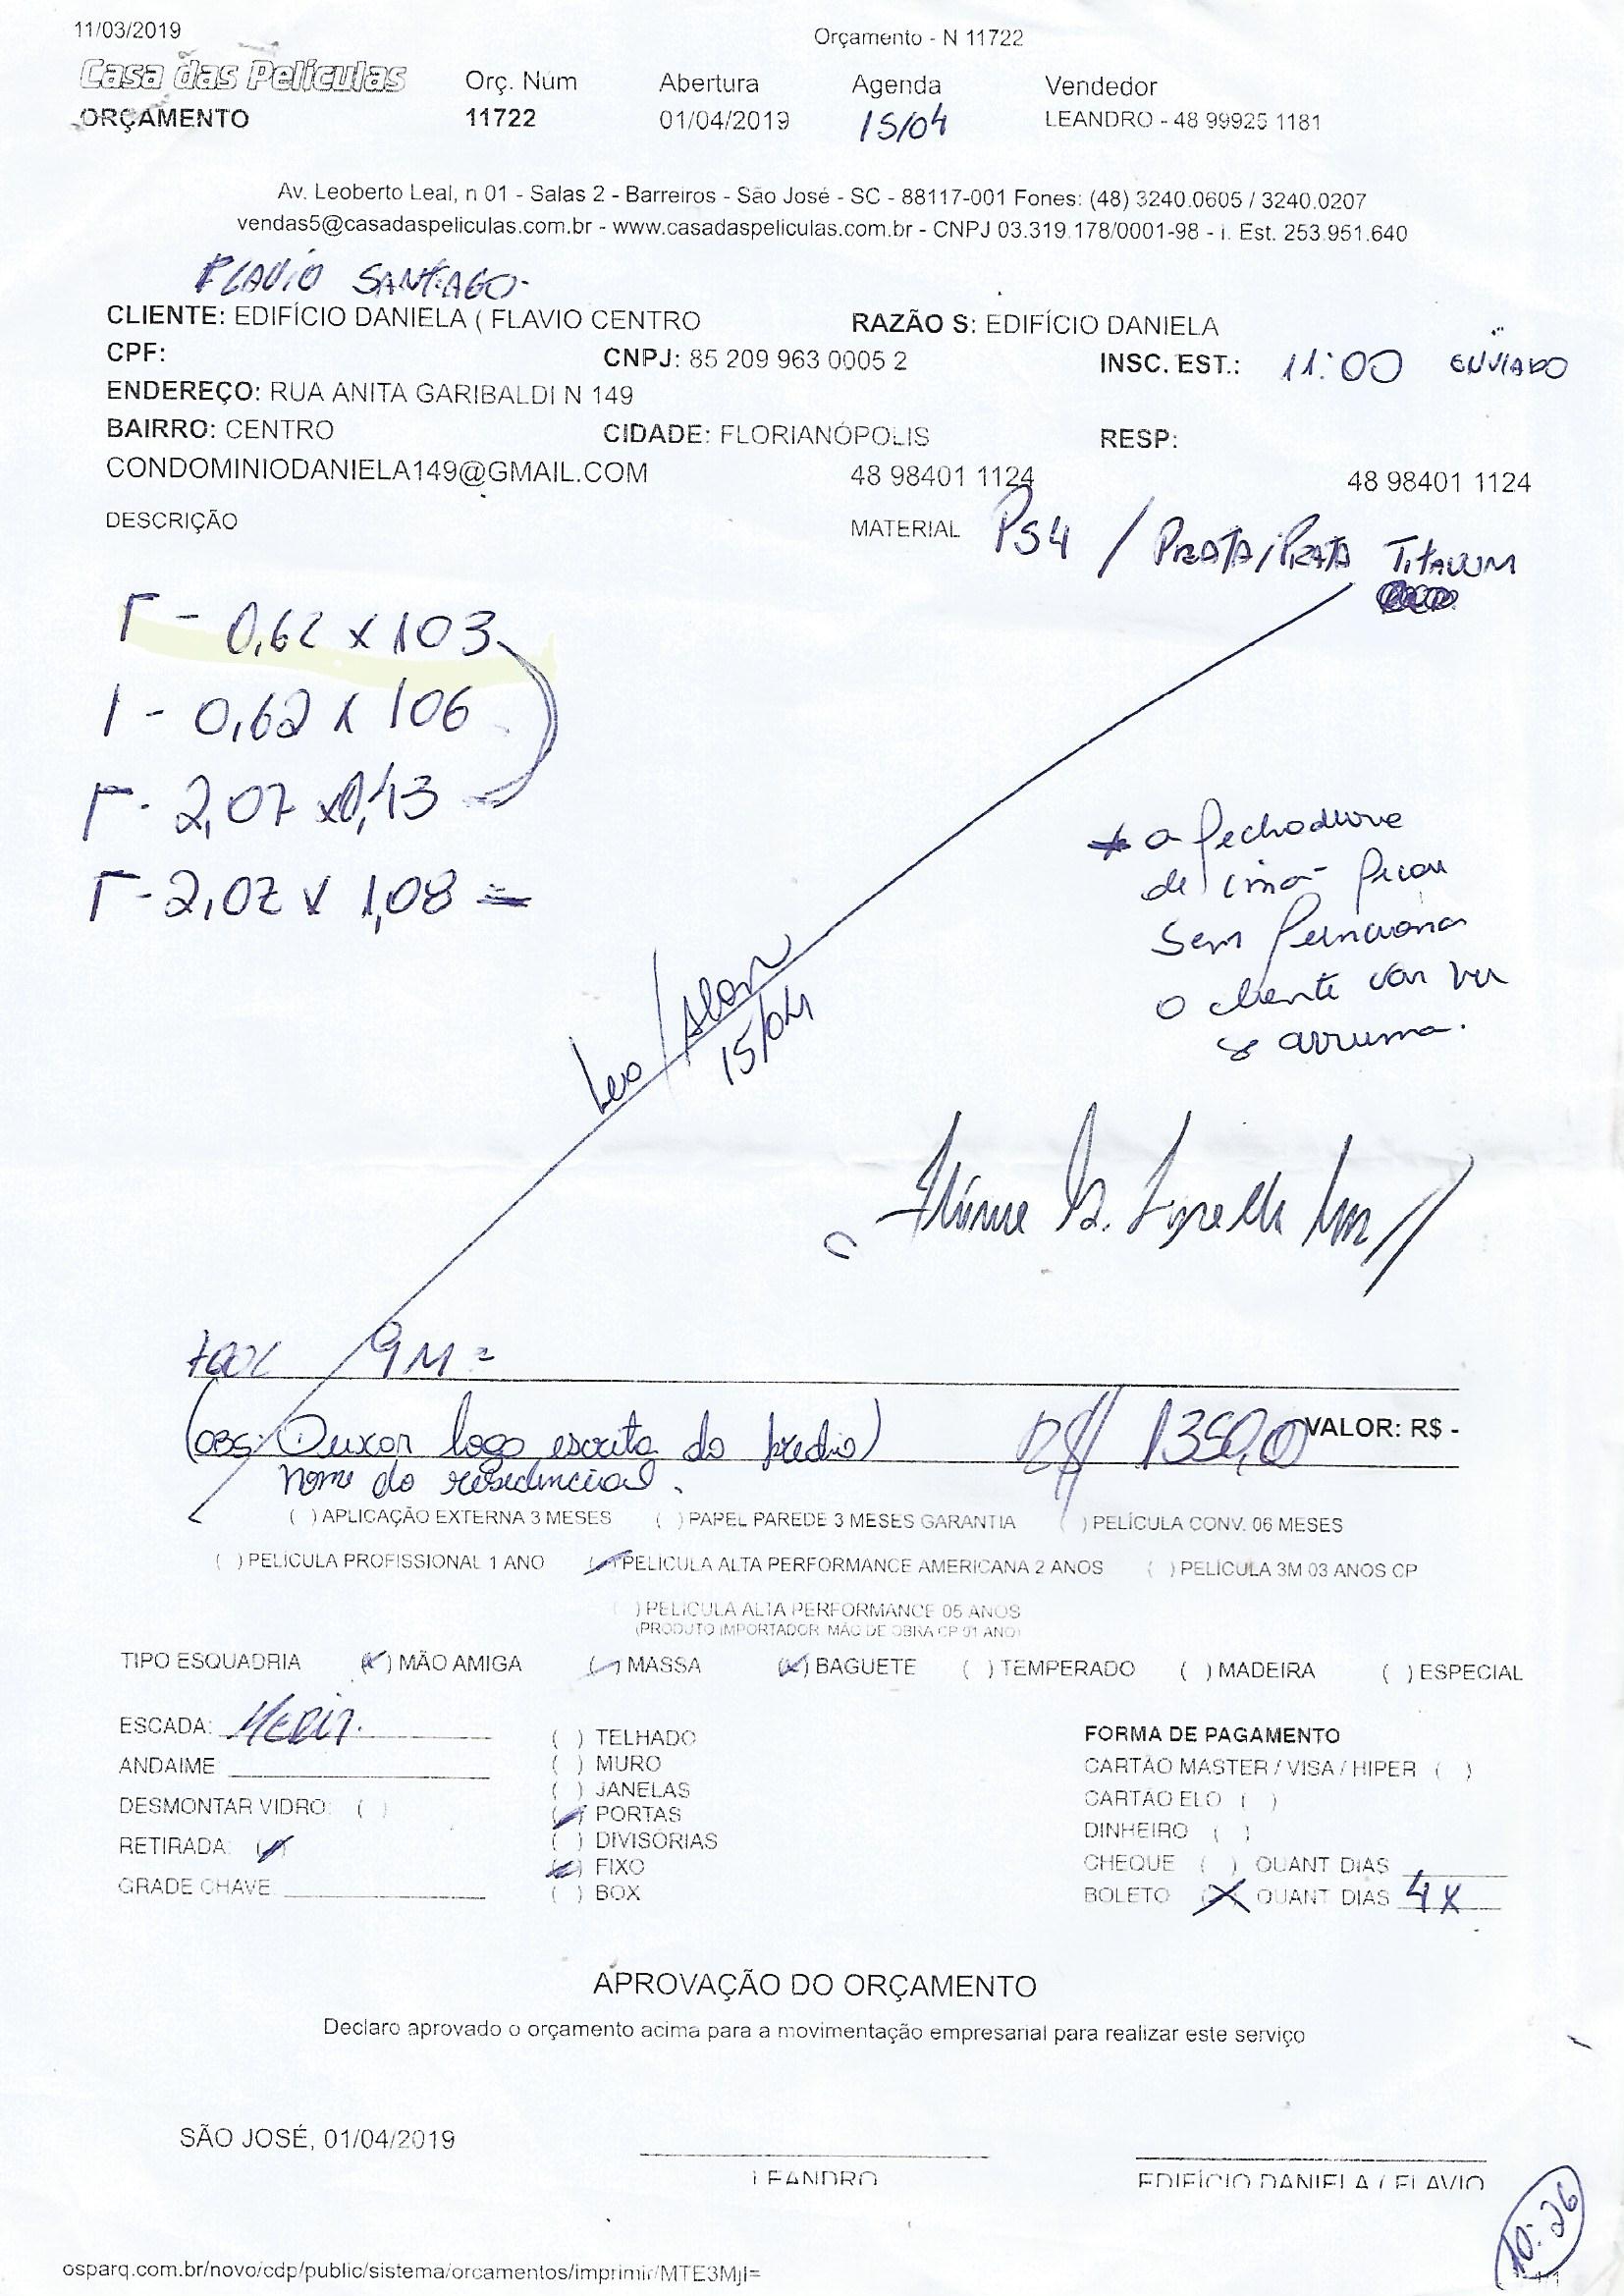 11/03/2019
Orçamento - N 11722
Casa das Películas
Orç. Núm Abertura Agenda Vendedor
ORÇAMENTO 11722 01/04/2019 15/04 LEANDRO - 48 99925 1181
Av. Leoberto Leal, n 01 - Salas 2 - Barreiros - São José - SC - 88117-001 Fones: (48) 3240.0605 / 3240.0207
vendas5@casadaspeliculas.com.br - www.casadaspeliculas.com.br - CNPJ 03.319.178/0001-98 - i. Est. 253.951.640
FLAVIO SANTIAGO
CLIENTE: EDIFÍCIO DANIELA ( FLAVIO CENTRO RAZÃO S: EDIFÍCIO DANIELA
CPF: CNPJ: 85 209 963 0005 2 INSC. EST.: 11:00 ENVIADO
ENDEREÇO: RUA ANITA GARIBALDI N 149
BAIRRO: CENTRO CIDADE: FLORIANÓPOLIS RESP:
CONDOMINIODANIELA149@GMAIL.COM 48 98401 1124 48 98401 1124
DESCRIÇÃO MATERIAL PS4 / PRATA/PRATA TITANIUM
1 - 0,62 x 103
1 - 0,62 x 106
1 - 2,07 x 0,43
1 - 2,07 x 1,08 =
* a fechadura
de imã ficou
sem funciona
o cliente vai ver
se arruma.
Leo / Alan
15/04
9M =
(OBS: Deixar logo escrita do predio)
nome do residencial.
R$ 1350,0 VALOR: R$ -
( ) APLICAÇÃO EXTERNA 3 MESES ( ) PAPEL PAREDE 3 MESES GARANTIA ( ) PELÍCULA CONV. 06 MESES
( ) PELÍCULA PROFISSIONAL 1 ANO (✓) PELÍCULA ALTA PERFORMANCE AMERICANA 2 ANOS ( ) PELÍCULA 3M 03 ANOS CP
( ) PELÍCULA ALTA PERFORMANCE 05 ANOS
(PRODUTO IMPORTADOR, MÃO DE OBRA CP 01 ANO)
TIPO ESQUADRIA (x) MÃO AMIGA (✓) MASSA (x) BAGUETE ( ) TEMPERADO ( ) MADEIRA ( ) ESPECIAL
ESCADA: MEDIA.
ANDAIME:
DESMONTAR VIDRO: ( )
RETIRADA: (✓)
GRADE CHAVE:
( ) TELHADO
( ) MURO
( ) JANELAS
(✓) PORTAS
( ) DIVISÓRIAS
(✓) FIXO
( ) BOX
FORMA DE PAGAMENTO
CARTÃO MASTER / VISA / HIPER ( )
CARTÃO ELO ( )
DINHEIRO ( )
CHEQUE ( ) QUANT DIAS
BOLETO (X) QUANT DIAS 4X
APROVAÇÃO DO ORÇAMENTO
Declaro aprovado o orçamento acima para a movimentação empresarial para realizar este serviço
SÃO JOSÉ, 01/04/2019
LEANDRO
EDIFÍCIO DANIELA / FLAVIO
10:26
osparq.com.br/novo/cdp/public/sistema/orcamentos/imprimir/MTE3MjI=
1/1